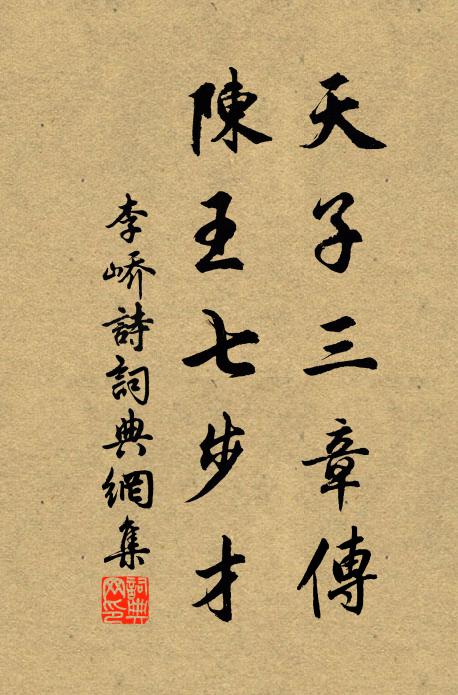 天子三章傳
陳王七步才
李嶠詩詞典網集
詞典网印